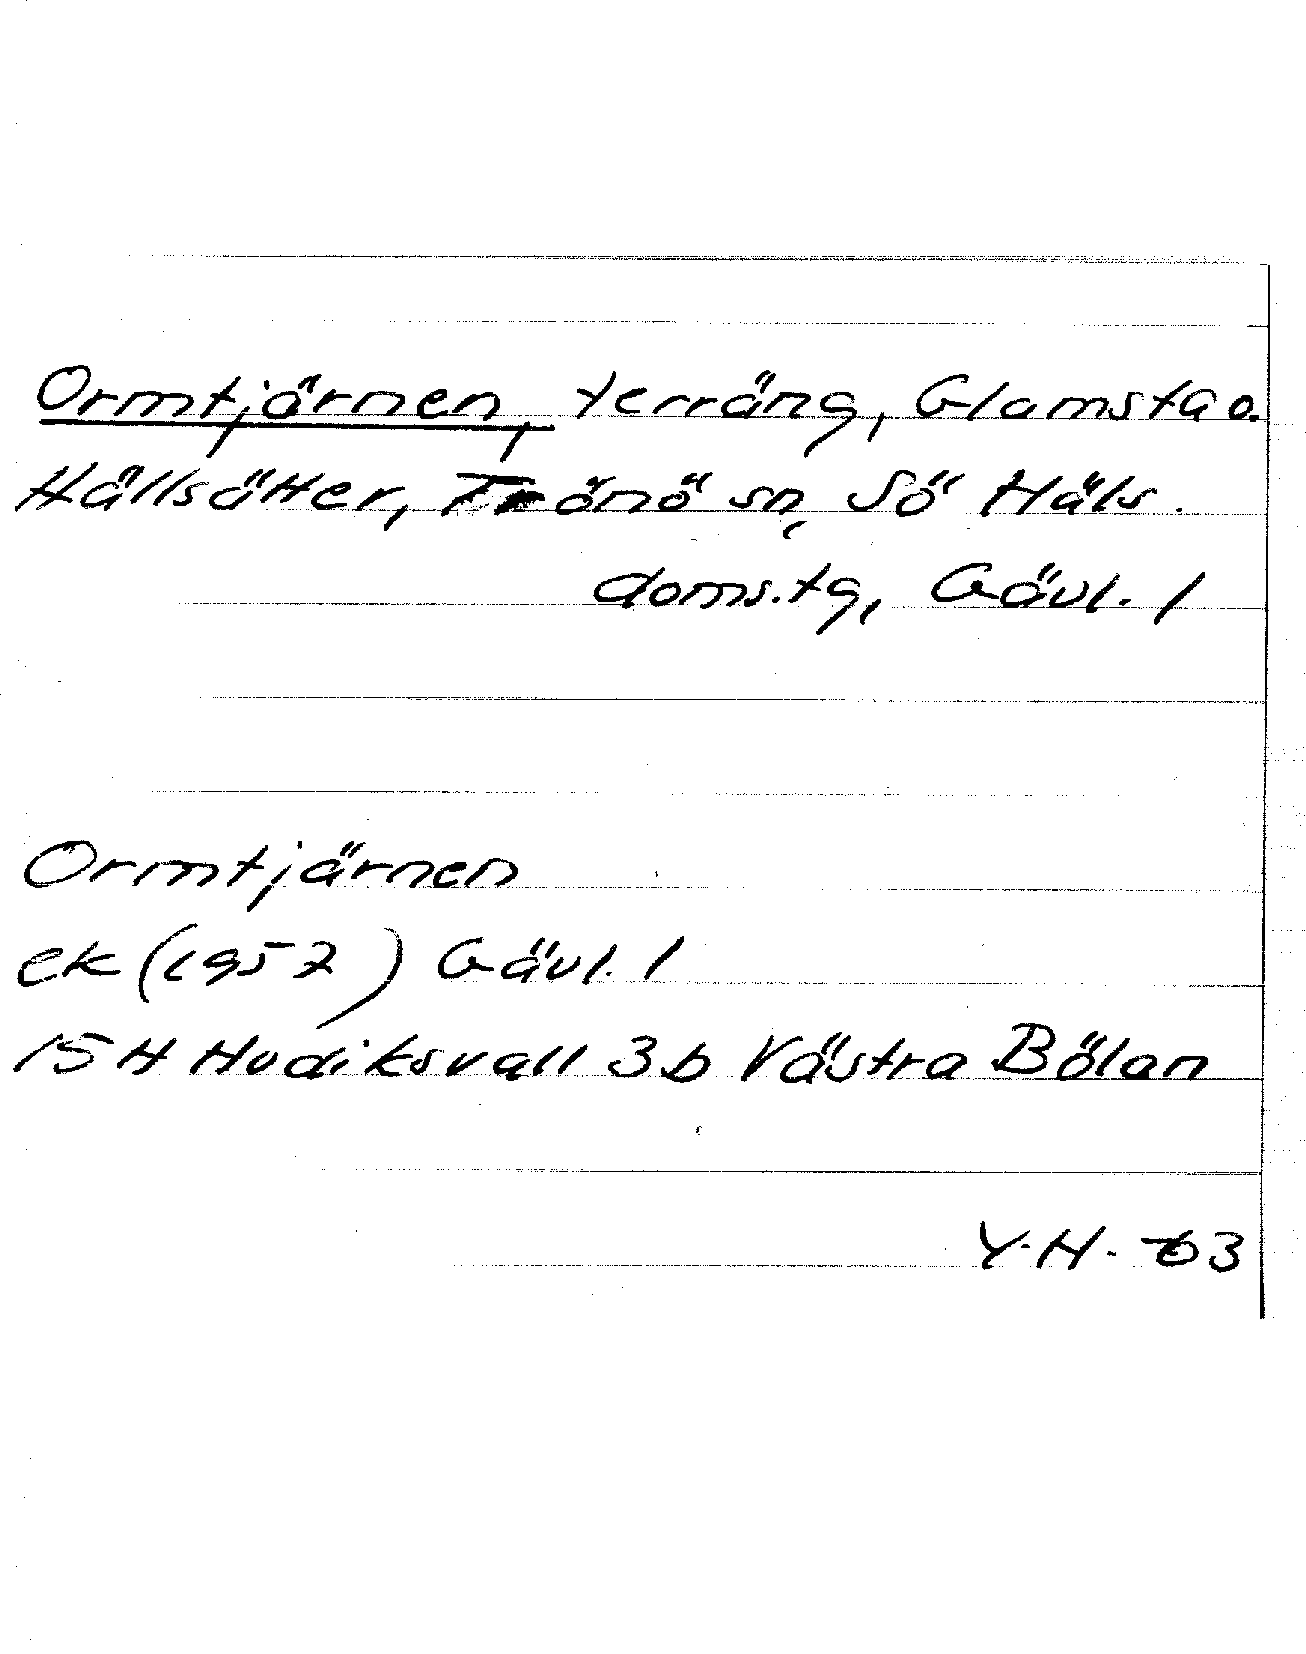 Ormtjärnen, terräng, Glamsta o.
Hällsätter, Trönö sn, Sö Häls.
doms.tg, Gävl. l
Ormtjärnen
ek (1957) Gävl. l
15 H Hudiksvall 3 b Västra Bölan
Y.H. -63